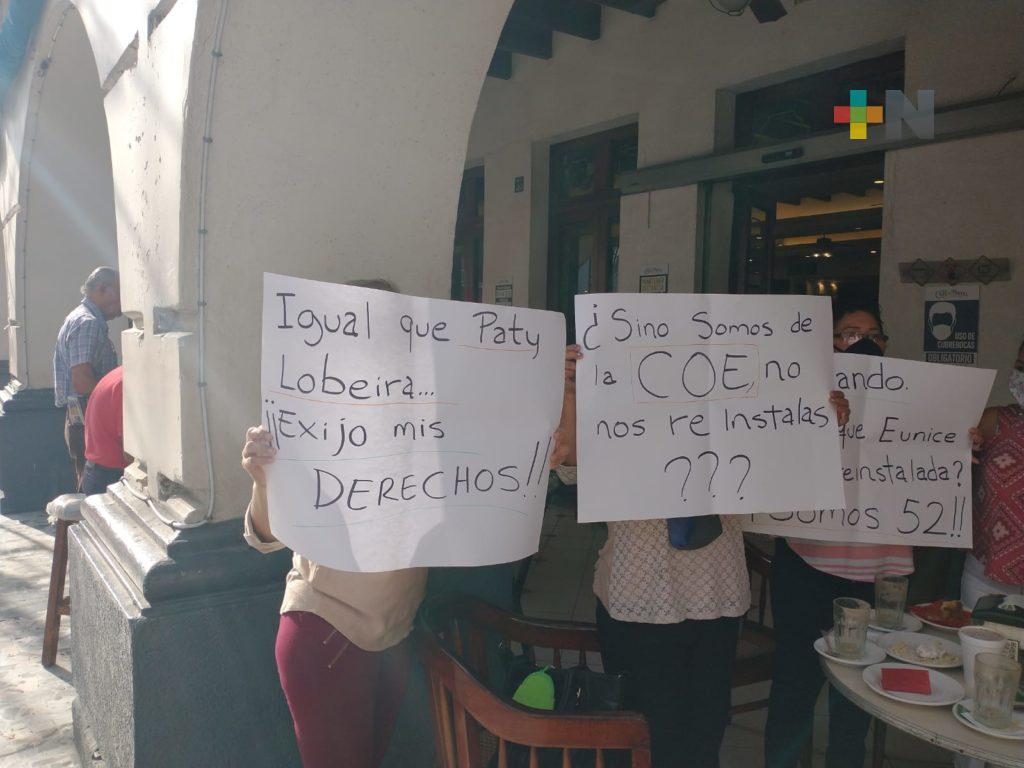 +N
Igual que Paty
Lobeira...
¡¡Exijo mis
DERECHOS!!
¿Sino Somos de
la COE, no
nos re Instalas
???
ando.
que Eunice
reinstalada?
Somos 52!!
USO DE
CUBREBOCAS
OBLIGATORIO